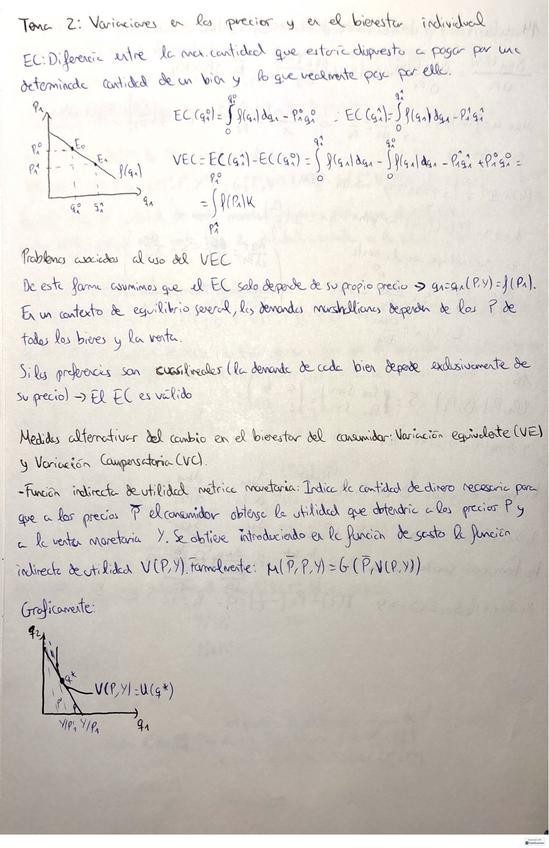 Tema 2: Variaciones en los precios y en el bienestar individual
EC: Diferencia entre la max. cantidad que estaría dispuesto a pagar por una
determinada cantidad de un bien y lo que realmente paga por ella.
P₁
P₁⁰
P₁¹
E₀
E₁
f(q₁)
q₁⁰ q₁¹ q₁
EC(q₁⁰)=∫₀^{q₁⁰} f(q₁)dq₁ - P₁⁰q₁⁰ ; EC(q₁¹)=∫₀^{q₁¹} f(q₁)dq₁ - P₁¹q₁¹
VEC=EC(q₁¹)-EC(q₁⁰)=∫₀^{q₁¹} f(q₁)dq₁ - ∫₀^{q₁⁰} f(q₁)dq₁ - P₁¹q₁¹ + P₁⁰q₁⁰ =
=∫_{P₁¹}^{P₁⁰} f(P₁)
Problemas asociados al uso del VEC
De esta forma asumimos que el EC solo depende de su propio precio → q₁=q₁(P,Y)=f(P₁).
En un contexto de equilibrio general, las demandas marshallianas dependen de los P de
todos los bienes y la renta.
Si las preferencias son cuasilineales (la demanda de cada bien depende exclusivamente de
su precio) → El EC es válido
Medidas alternativas del cambio en el bienestar del consumidor: Variación equivalente (VE)
y Variación Compensatoria (VC).
-Función indirecta de utilidad métrica monetaria: Indica la cantidad de dinero necesaria para
que a los precios P̄ el consumidor obtenga la utilidad que obtendría a los precios P y
a la renta monetaria Y. Se obtiene introduciendo en la función de gasto la función
indirecta de utilidad V(P,Y). Formalmente: μ(P̄,P,Y)=G(P̄,V(P,Y))
Graficamente:
q₂
q*
V(P,Y)=U(q*)
Y/P₁' Y/P₁ q₁